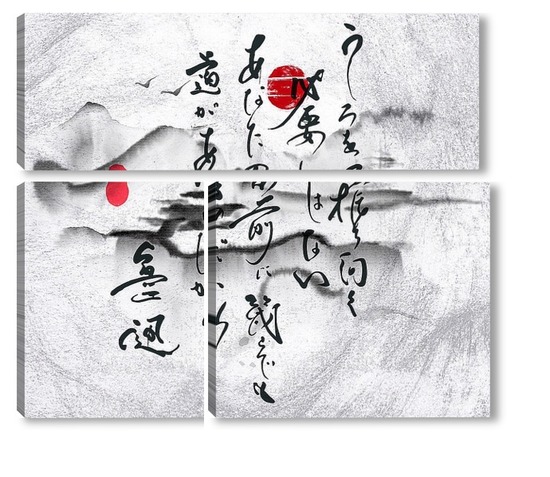 うしろを振り向く
必要はない
あなたの前に幾らでも
道があるのだから
魯迅